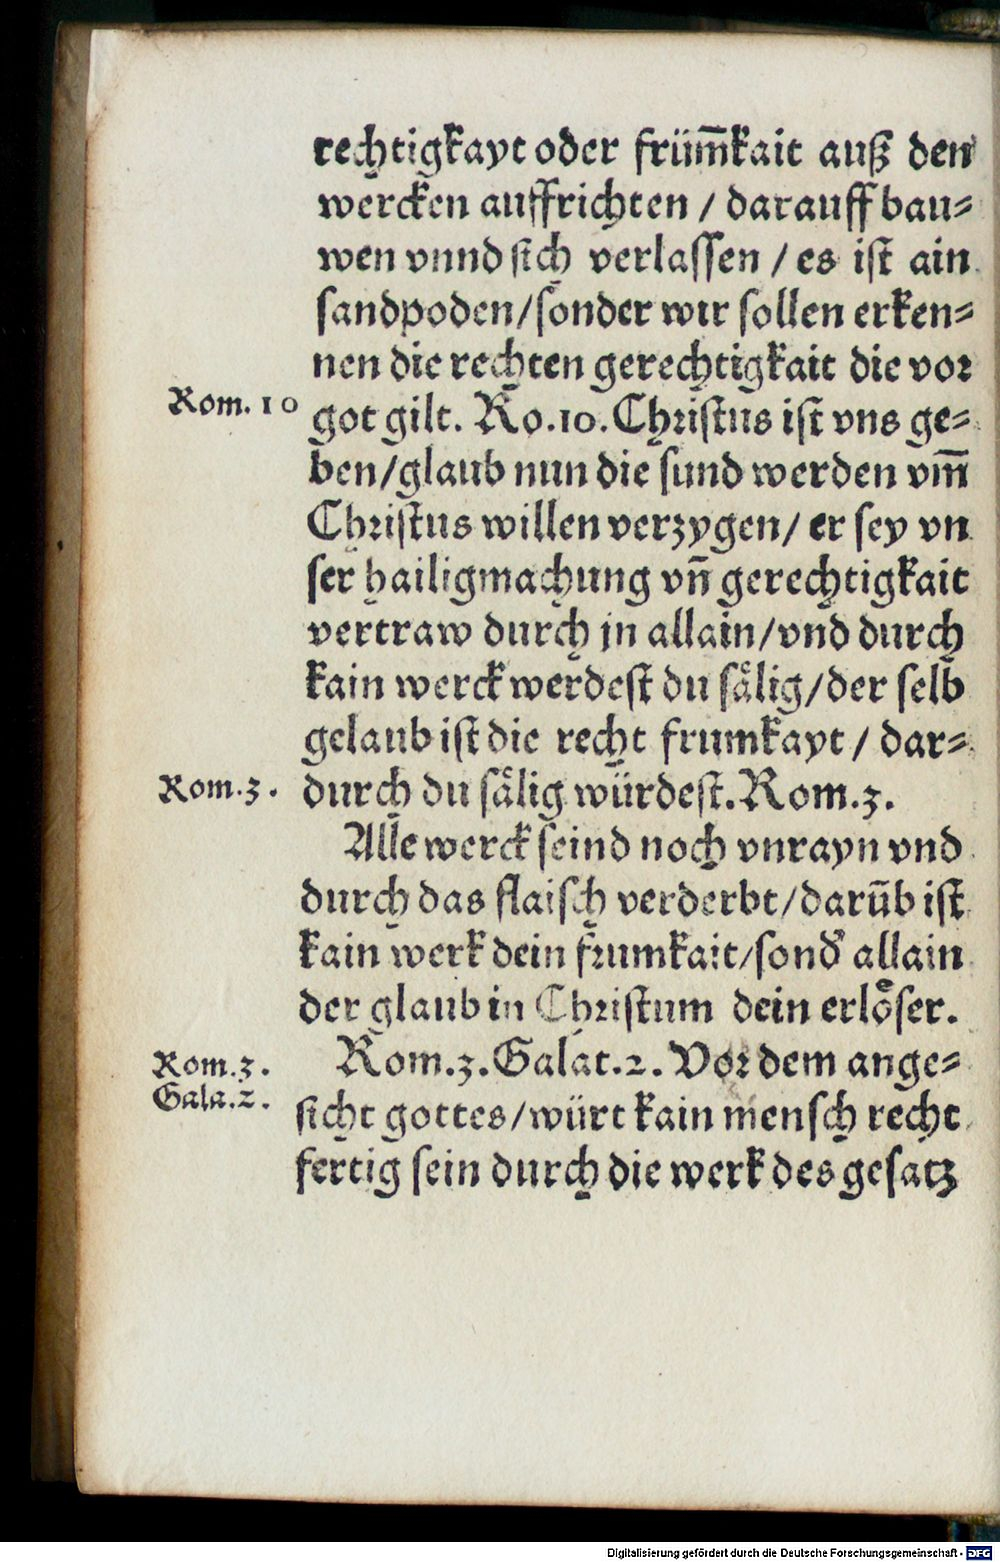 rechtigkayt oder früm̅kait auß den
wercken auffrichten / darauff bau⸗
wen vnnd sich verlassen / es ist ain
sandpoden/sonder wir sollen erken⸗
nen die rechten gerechtigkait die vor
Rom. 10
got gilt. Ro.10. Christus ist vns ge⸗
ben/glaub nun die sund werden vm̅
Christus willen verzygen/ er sey vn
ser hailigmachung vn̅ gerechtigkait
vertraw durch jn allain/vnd durch
kain werck werdest du sålig/der selb
gelaub ist die recht frumkayt / dar⸗
Rom.3.
durch du sålig würdest. Rom.3.
Alle werck seind noch vnrayn vnd
durch das flaisch verderbt/daru̅b ist
kain werk dein frumkait/sond' allain
der glaub in Christum dein erlöser.
Rom.3.
Rom.3. Galat.2. Vor dem ange⸗
Gala.2.
sicht gottes/würt kain mensch recht
fertig sein durch die werk des gesatz
Digitalisierung gefördert durch die Deutsche Forschungsgemeinschaft - DFG